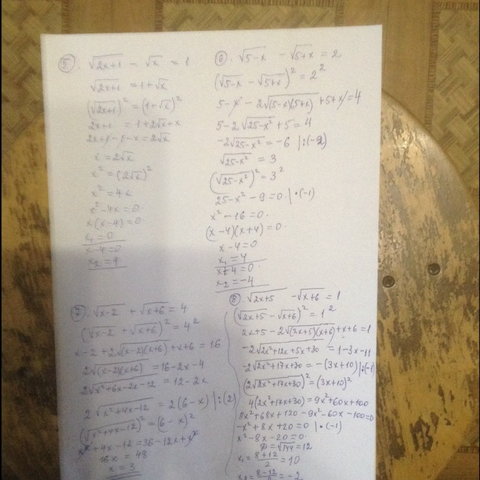 5. √2x+1 - √x = 1
√2x+1 = 1+√x
(√2x+1)² = (1-√x)²
2x+1 = 1+2√x+x
2x+1-1-x = 2√x
x = 2√x
x² = (2√x)²
x² = 4x
x² - 4x = 0
x(x-4) = 0
x₁ = 0
x-4 = 0
x₂ = 4
6. √5-x - √5+x = 2
(√5-x - √5+x)² = 2²
5-x - 2√(5-x)(5+x) + 5+x = 4
5 - 2√25-x² + 5 = 4
-2√25-x² = -6 |:(-2)
√25-x² = 3
(√25-x²)² = 3²
25-x² - 9 = 0 |·(-1)
x² - 16 = 0
(x-4)(x+4) = 0
x-4 = 0
x₁ = 4
x+4 = 0
x₂ = -4
7. √x-2 + √x+6 = 4
(√x-2 + √x+6)² = 4²
x-2 + 2√(x-2)(x+6) + x+6 = 16
2√(x-2)(x+6) = 16-2x-4
2√x²+6x-2x-12 = 12-2x
2√x²+4x-12 = 2(6-x) |:(2)
(√x²+4x-12)² = (6-x)²
x²+4x-12 = 36-12x+x²
16x = 48
x = 3
8. √2x+5 - √x+6 = 1
(√2x+5 - √x+6)² = 1²
2x+5 - 2√(2x+5)(x+6) + x+6 = 1
-2√2x²+12x+5x+30 = 1-3x-11
-2√2x²+17x+30 = -(3x+10) |:(-1)
(2√2x²+17x+30)² = (3x+10)²
4(2x²+17x+30) = 9x²+60x+100
8x²+68x+120-9x²-60x-100=0
-x²+8x+20=0 |·(-1)
x²-8x-20=0
√144=12
x₁ = 8+12/2 = 10
x₂ = 8-12/2 = -2